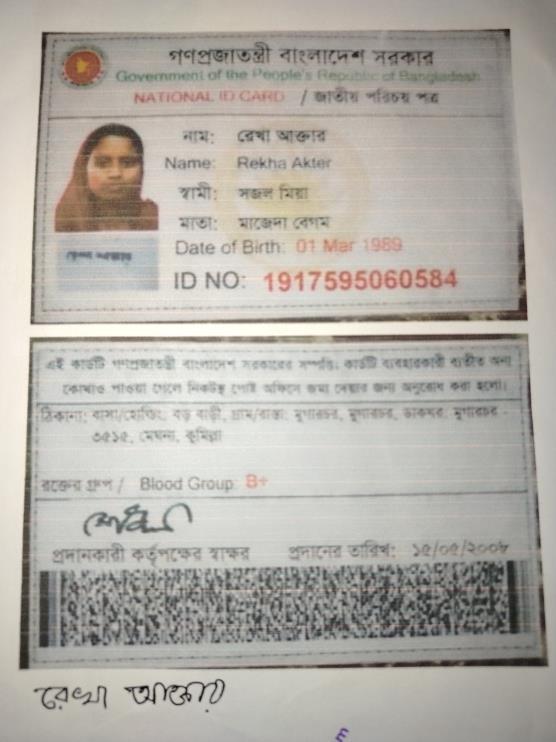 গণপ্রজাতন্ত্রী বাংলাদেশ সরকার
Government of the People's Republic of Bangladesh
NATIONAL ID CARD / জাতীয় পরিচয় পত্র
নাম: রেখা আক্তার
Name: Rekha Akter
স্বামী: সজল মিয়া
মাতা: মাজেদা বেগম
Date of Birth: 01 Mar 1989
ID NO: 1917595060584
রেখা আক্তার
এই কার্ডটি গণপ্রজাতন্ত্রী বাংলাদেশ সরকারের সম্পত্তি। কার্ডটি ব্যবহারকারী ব্যতীত অন্য
কোথাও পাওয়া গেলে নিকটস্থ পোস্ট অফিসে জমা দেবার জন্য অনুরোধ করা হলো।
ঠিকানা: বাসা/হোল্ডিং: বড় বাড়ী, গ্রাম/রাস্তা: মুগারচর, মুগারচর, ডাকঘর: মুগারচর -
৩৫১৫, মেঘনা, কুমিল্লা
রক্তের গ্রুপ / Blood Group: B+
প্রদানকারী কর্তৃপক্ষের স্বাক্ষর প্রদানের তারিখ: ১৫/০৫/২০০৮
রেখা আক্তার